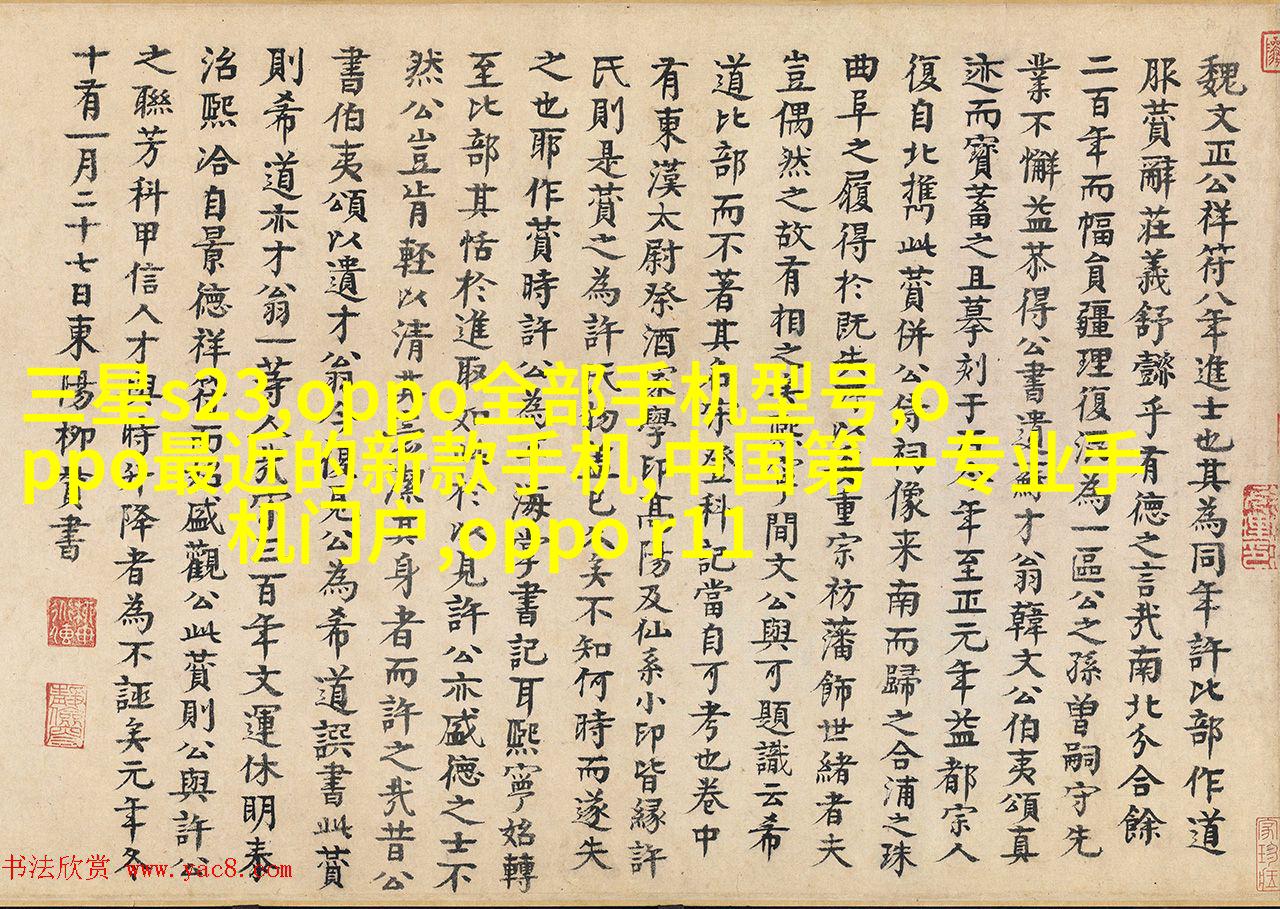 魏文正公祥符八年進士也其為同年許比部作道
服賛辭莊義舒懿乎有德之言㢤南北分合餘
二百年而幅員疆理復混為一區公之孫曽嗣守先
業不懈益恭得公書遺蘇才翁韓文公伯夷頌真
迹而寳蓄之且摹刻于年至正元年益都宗人
復自北攜此賛併公侍祠像来南而歸之合浦之珠
曲阜之履得於既失以重宗祊藩飾世緒者夫
豈偶然之故有相之矣熈寧間文公與可題識云希
道比部而不著其名然登科記當自可考也卷中
有東漢太尉祭酒家學印髙陽及仙系小印皆縁許
氏則是賛之為許氏物已久矣不知何時而遂失
之也耶作賛時許公為海掌書記耳熈寧始轉
至比部其恬於進取如於以見許公亦盛德之士不
然公豈肯輕以清其言潔其身者而許之㢤昔公
書伯夷頌以遺才翁今觀見公為希道譔書此賛
則希道亦才翁一等人矣三百年文運休明泰
治熈洽自景德祥符而盛觀公此賛則公與許公
之聯芳科甲信人才與時升降者為不誣矣元年冬
十有一月二十七日東陽柳貫書
三星s23,oppo全部手机型号,o
ppo最近的新款手机,中国第一专业手
机门户,oppo r11
书法欣赏 www.yac8.com